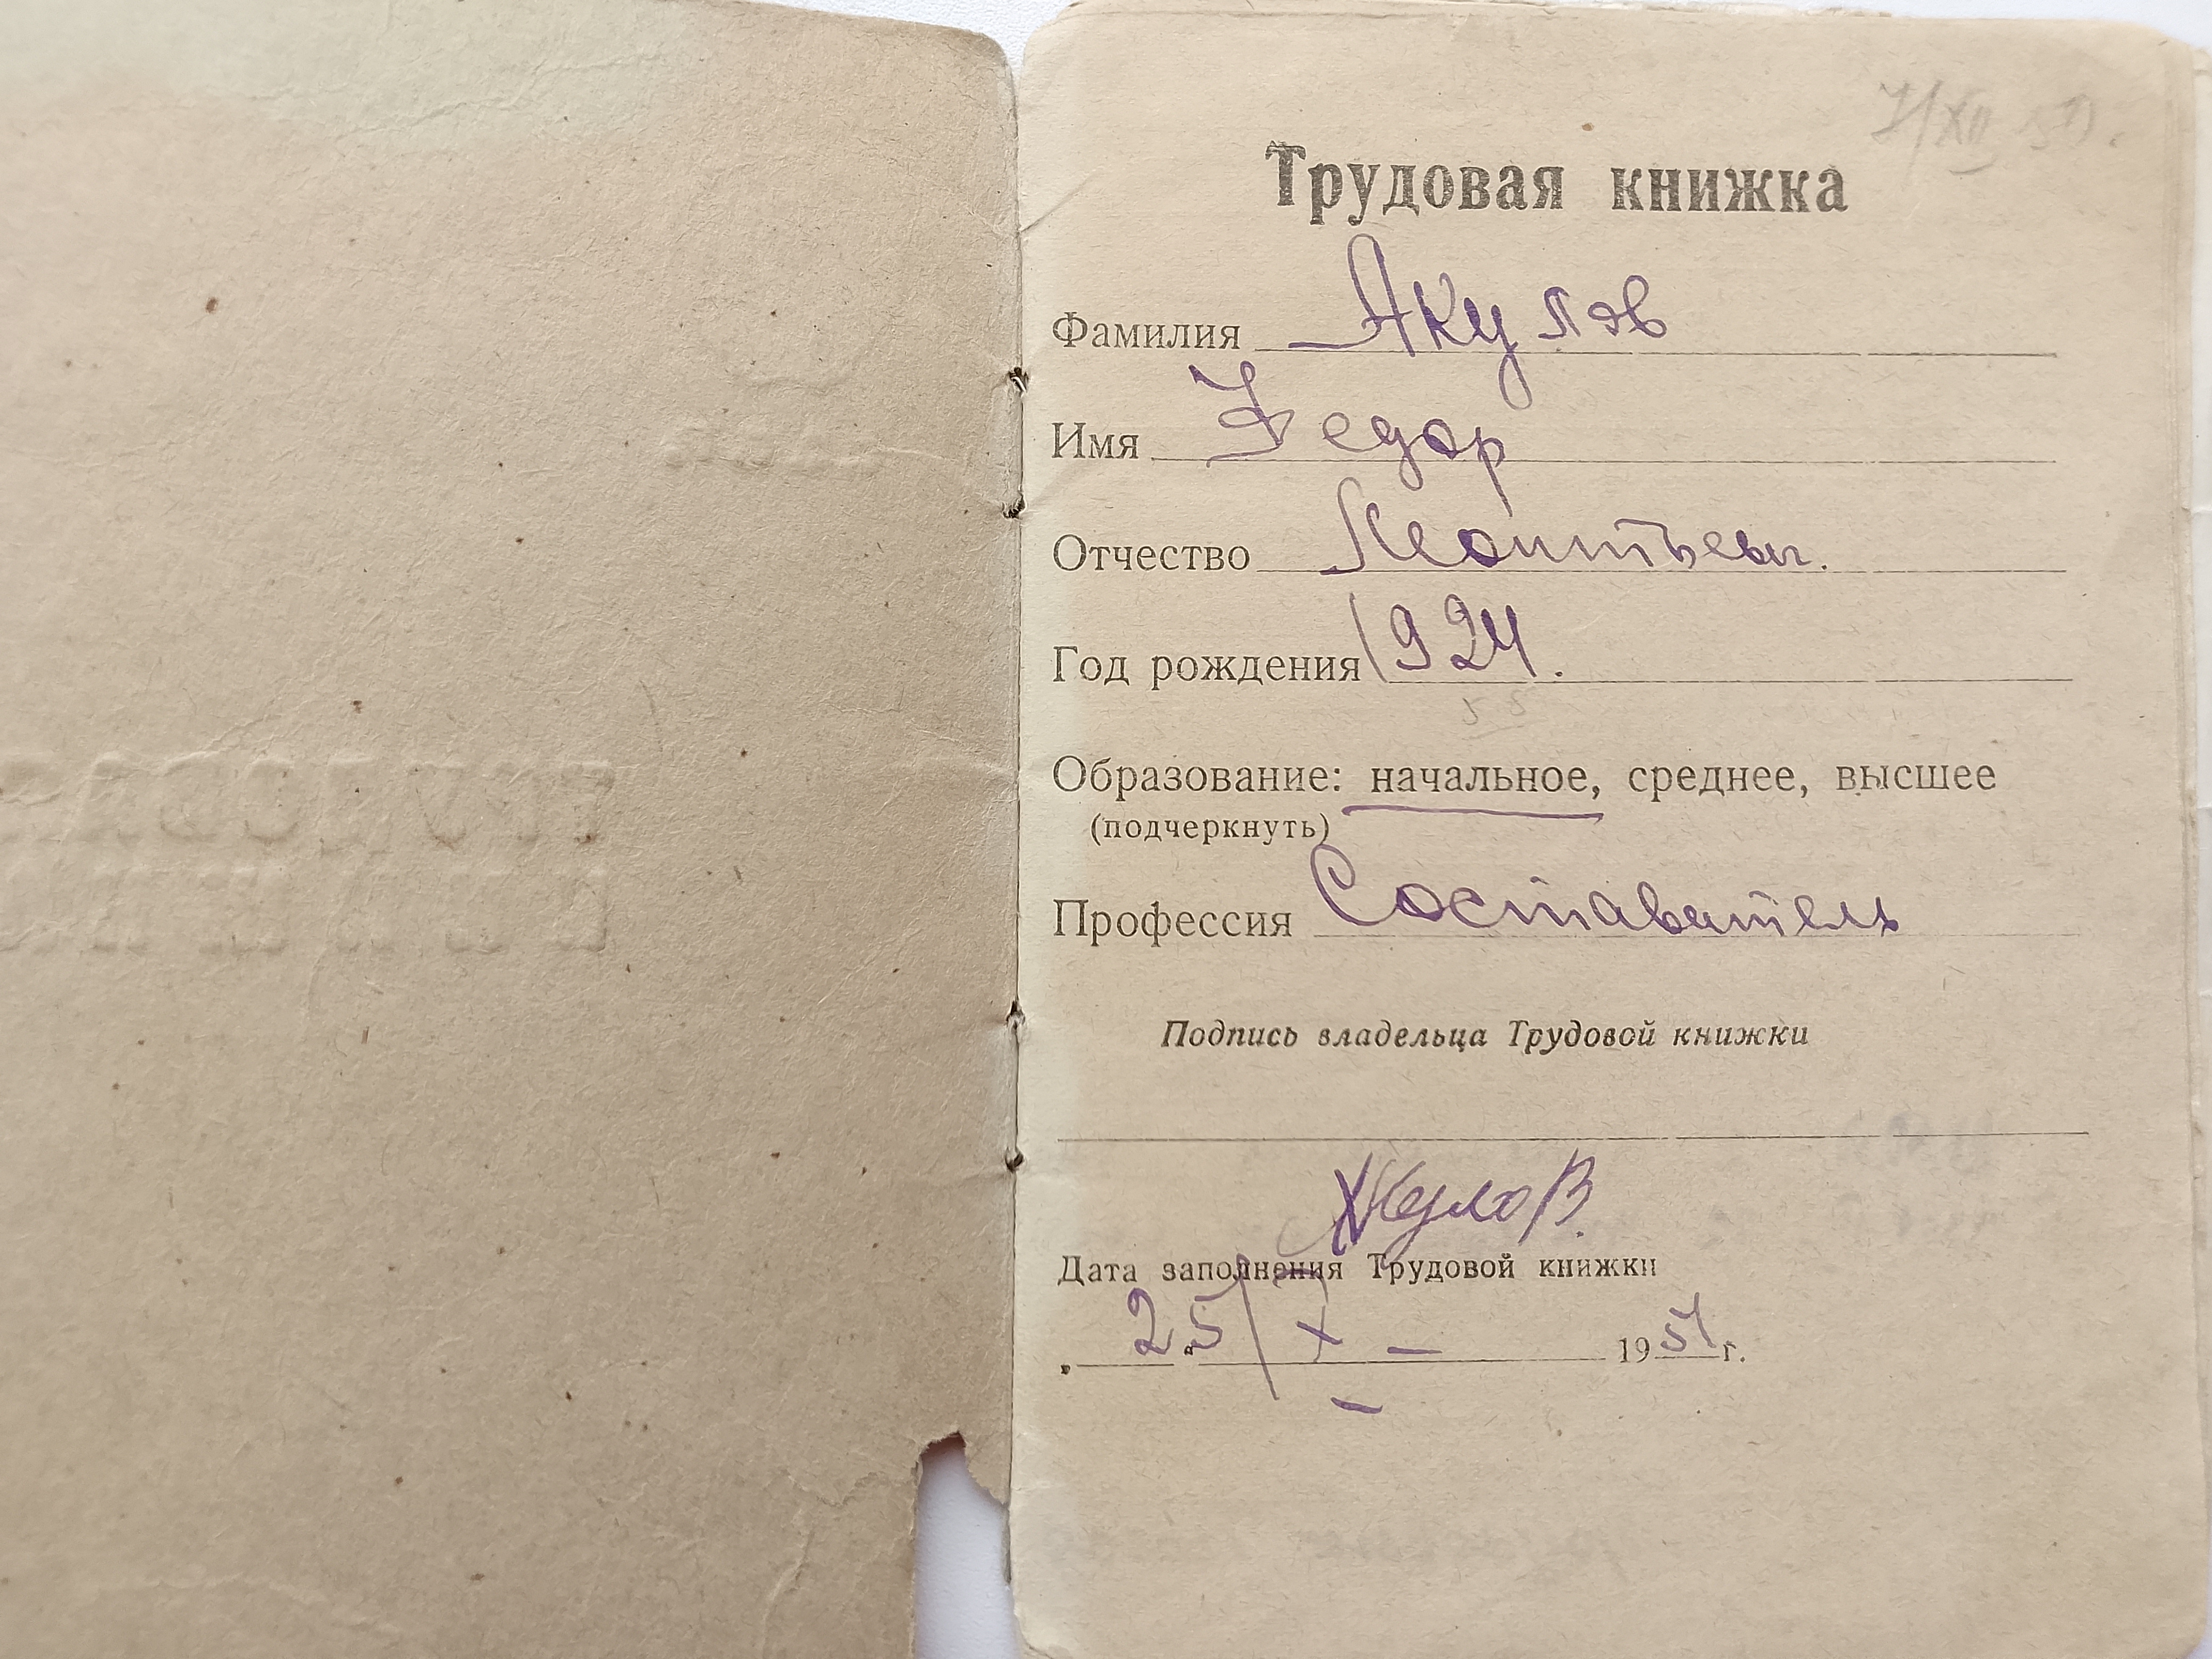 Трудовая книжка
Фамилия Акулов
Имя Федор
Отчество Леонтьевич.
Год рождения 1924.
Образование: начальное, среднее, высшее
(подчеркнуть)
Профессия Составитель
Подпись владельца Трудовой книжки
Акулов
Дата заполнения Трудовой книжки
25/X 1951 г.